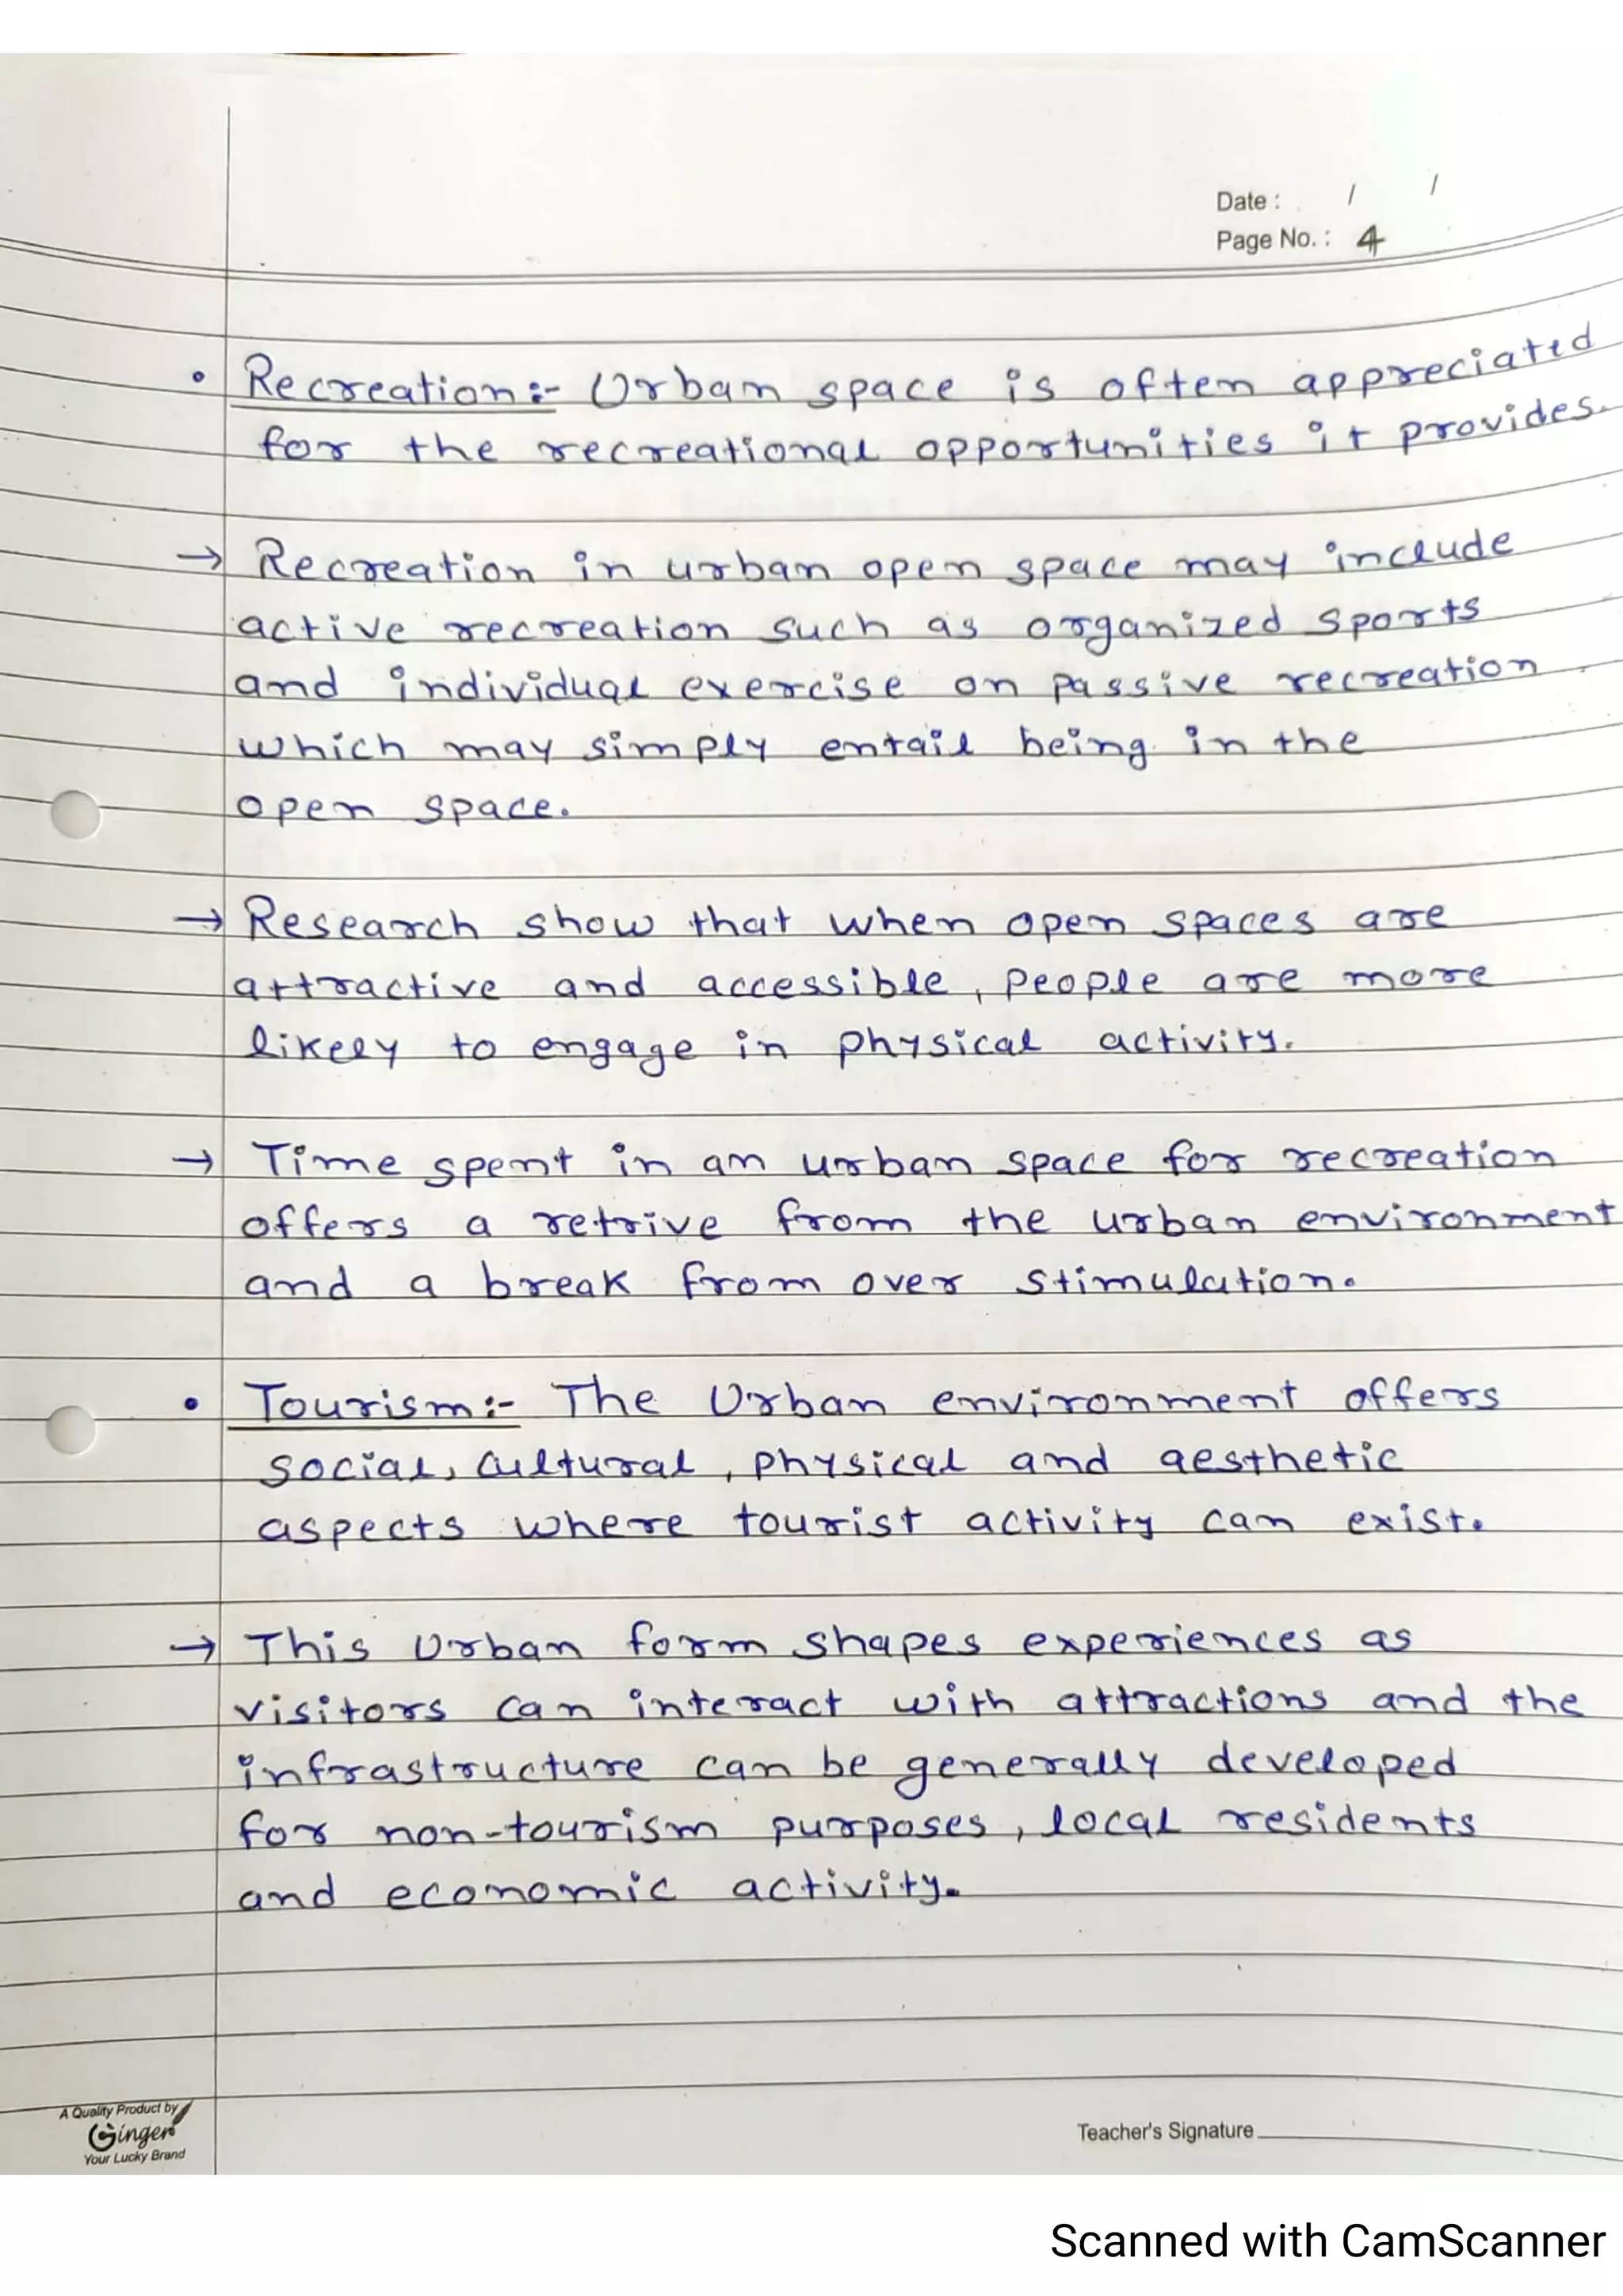 Date : / /
Page No. : 4
• Recreation:- Urban space is often appreciated
for the recreational opportunities it provides.
→ Recreation in urban open space may include
active recreation such as organized sports
and individual exercise on passive recreation
which may simply entail being in the
open space.
→ Research show that when open spaces are
attractive and accessible, people are more
likely to engage in physical activity.
→ Time spent in an urban space for recreation
offers a retrive from the urban environment
and a break from over stimulation.
• Tourism:- The Urban environment offers
social, cultural, physical and aesthetic
aspects where tourist activity can exist.
→ This Urban form shapes experiences as
visitors can interact with attractions and the
infrastructure can be generally developed
for non-tourism purposes, local residents
and economic activity.
A Quality Product by
Ginger
Your Lucky Brand
Teacher's Signature
Scanned with CamScanner